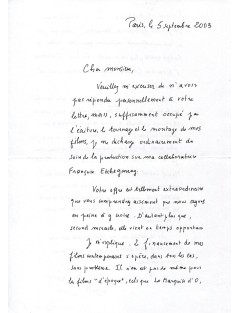 Paris, le 5 septembre 2003
Cher monsieur,
Veuillez m'excuser de n'avoir
pas répondu personnellement à votre
lettre, mais, suffisamment occupé par
l'écriture, le tournage et le montage de mes
films, je me décharge ordinairement du
soin de la production sur ma collaboratrice
Françoise Etchegaray.
Votre offre est tellement extraordinaire
que vous comprendrez aisément que nous ayons
eu peine à y croire. D'autant plus que,
seconde miracle, elle vient au temps opportun
Je m'explique. Le financement de mes
films contemporains s'opère, dans tous les cas,
sans problème. Il n'en est pas de même pour
les films "d'époque", tels que La Marquise d'O,